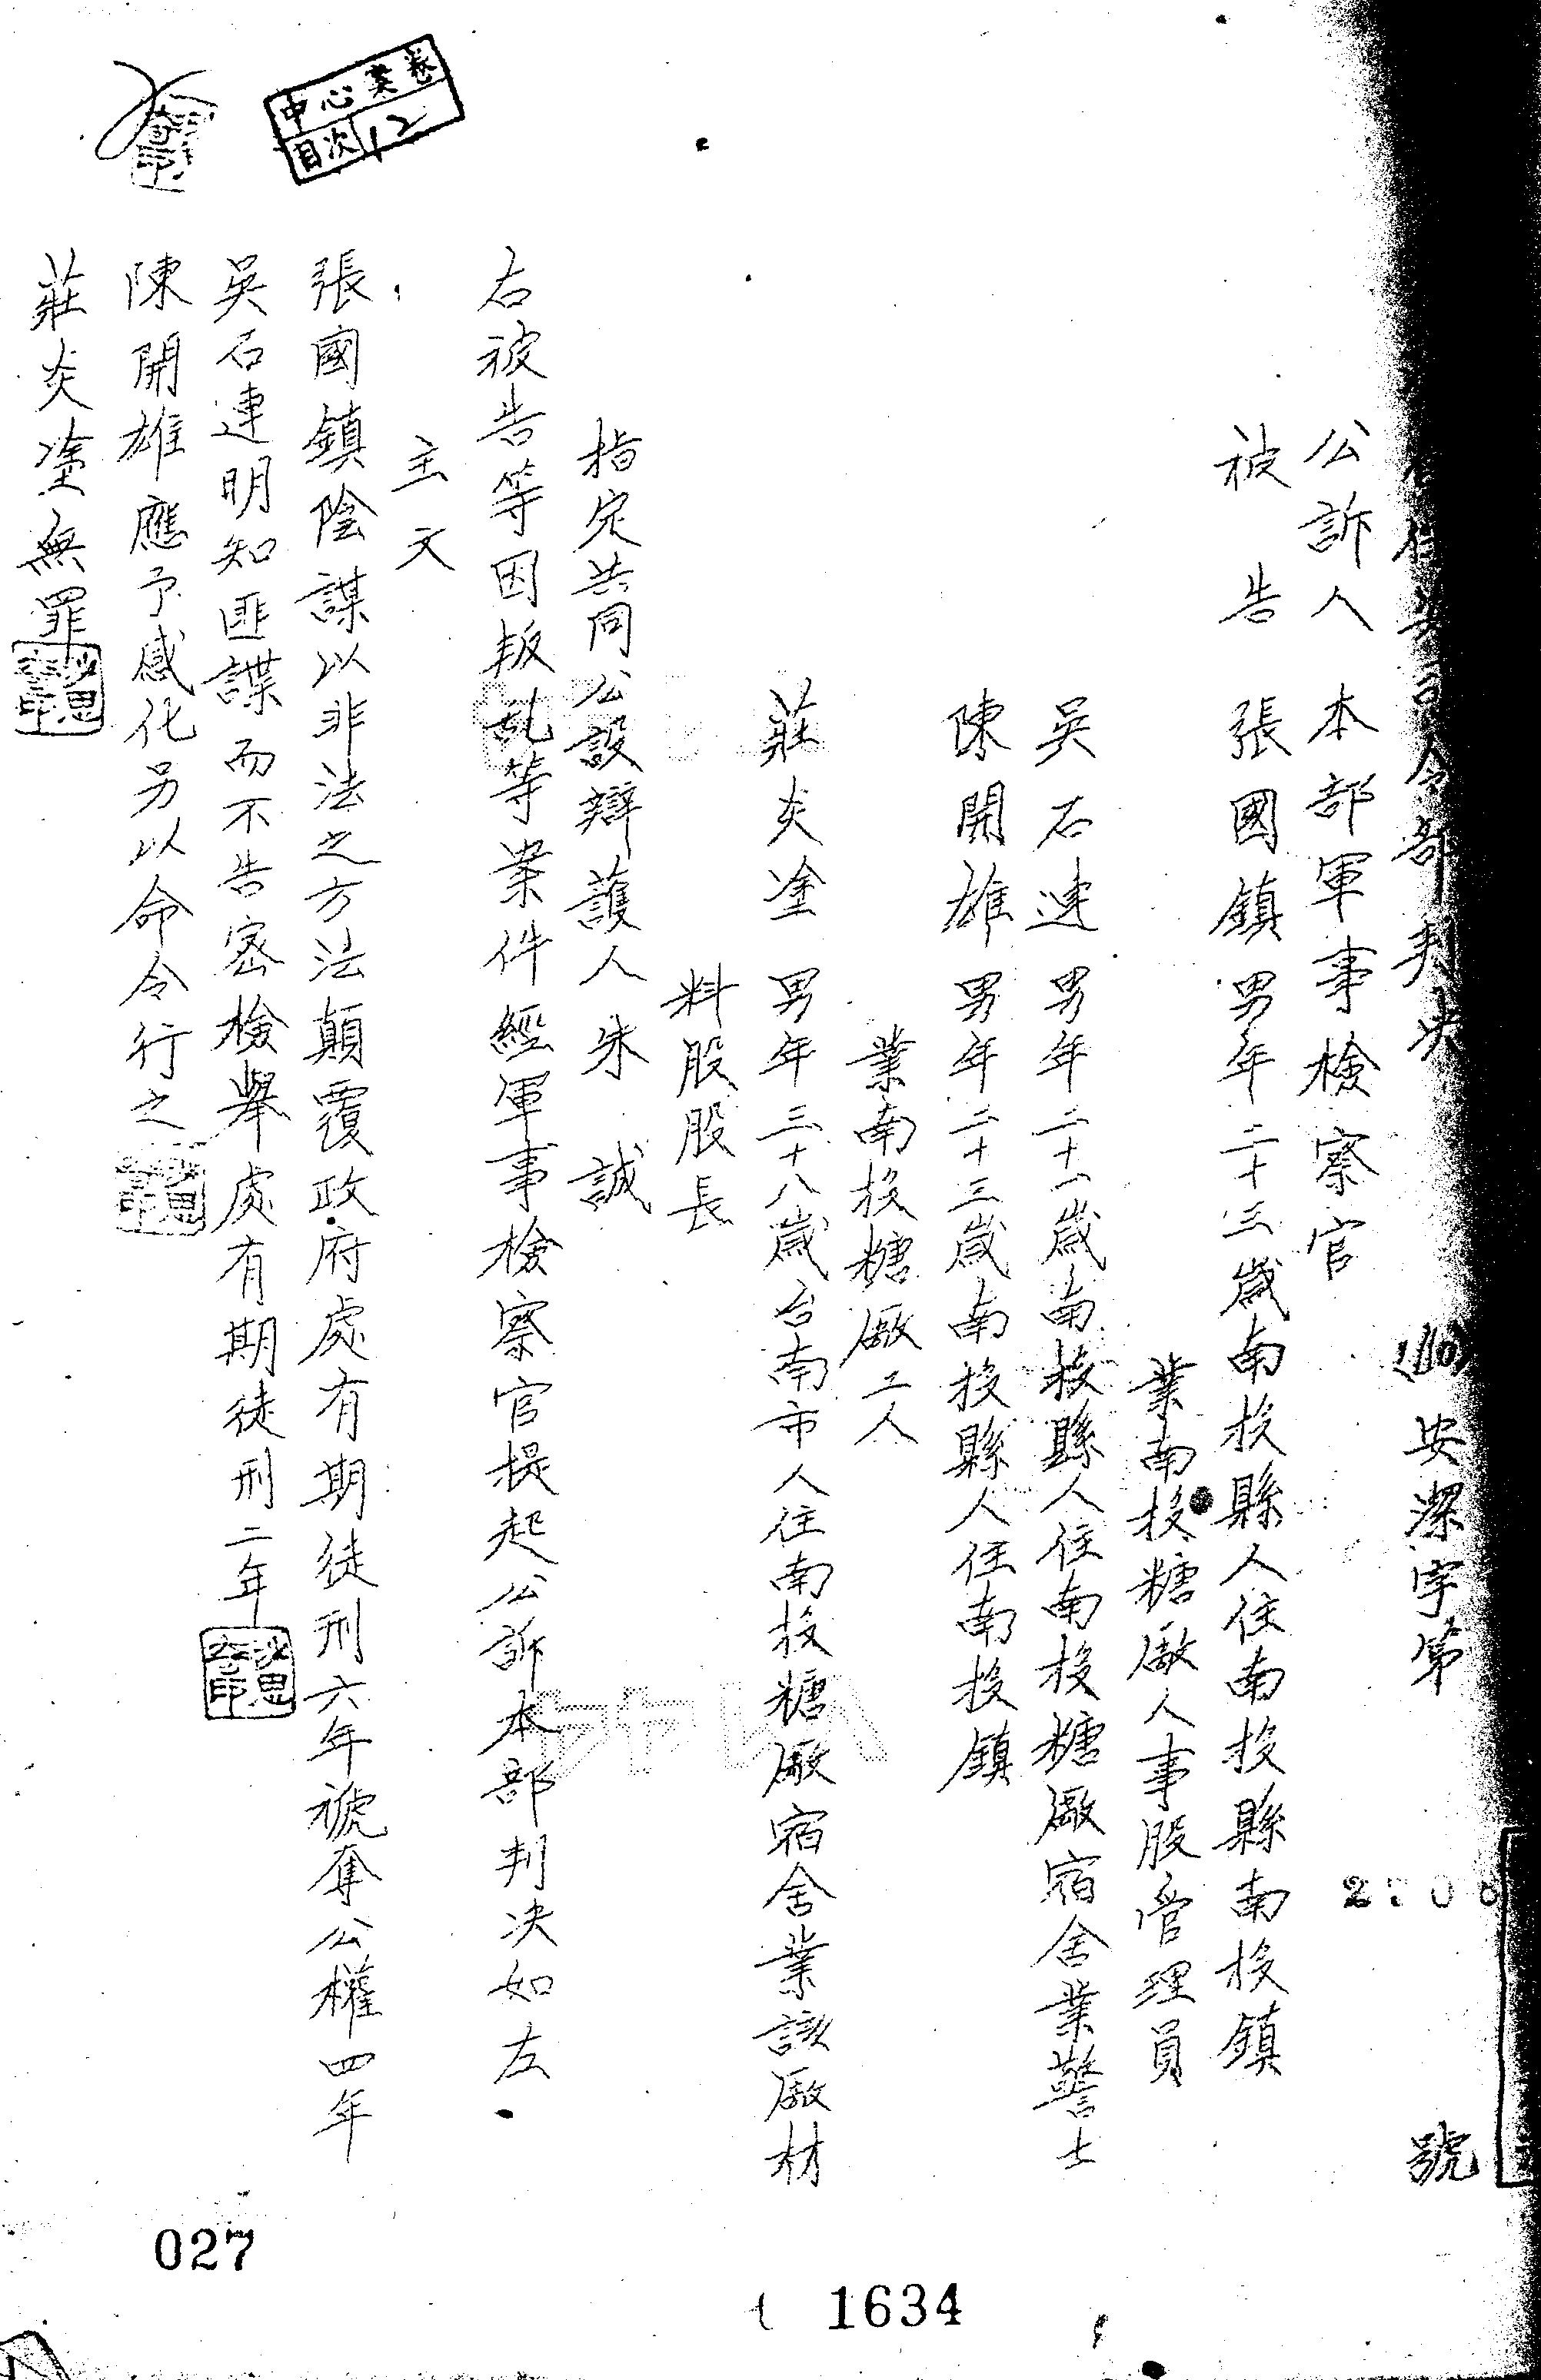 保安司令部判決 (40) 安潔字第 號
公訴人 本部軍事檢察官
被告 張國鎮 男年二十三歲南投縣人住南投縣南投鎮
業南投糖廠人事股管理員
吳石連 男年二十一歲南投縣人住南投糖廠宿舍業警士
陳開雄 男年二十三歲南投縣人住南投鎮
業南投糖廠工人
莊炎塗 男年三十八歲台南市人住南投糖廠宿舍業該廠材
料股股長
指定共同公設辯護人朱 誠
右被告等因叛乱等案件經軍事檢察官提起公訴本部判决如左.
主文
張國鎮陰謀以非法之方法顛覆政府處有期徒刑六年褫奪公權四年
吳石連明知匪諜而不告密檢舉處有期徒刑二年
陳開雄應予感化另以命令行之
莊炎塗無罪
中心案卷
目次 12
027
1634